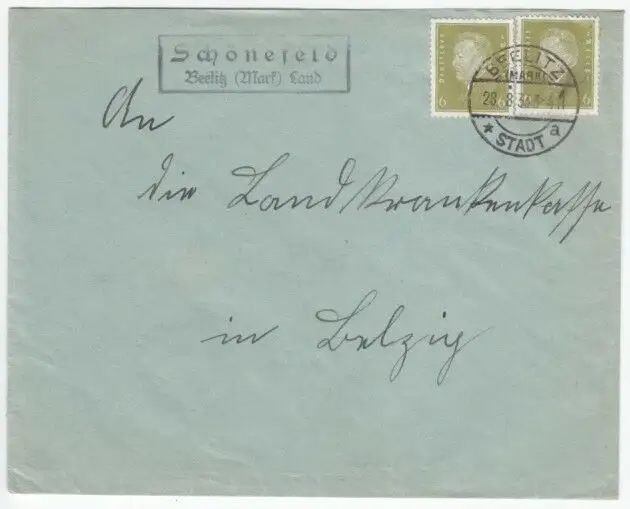 Schönefeld
Beelitz (Mark) Land
Deutsches Reich
6 6
Deutsches Reich
6
BEELITZ
(MARK)
28.8.
* STADT a
An
die Landkrankenkasse
in Belzig